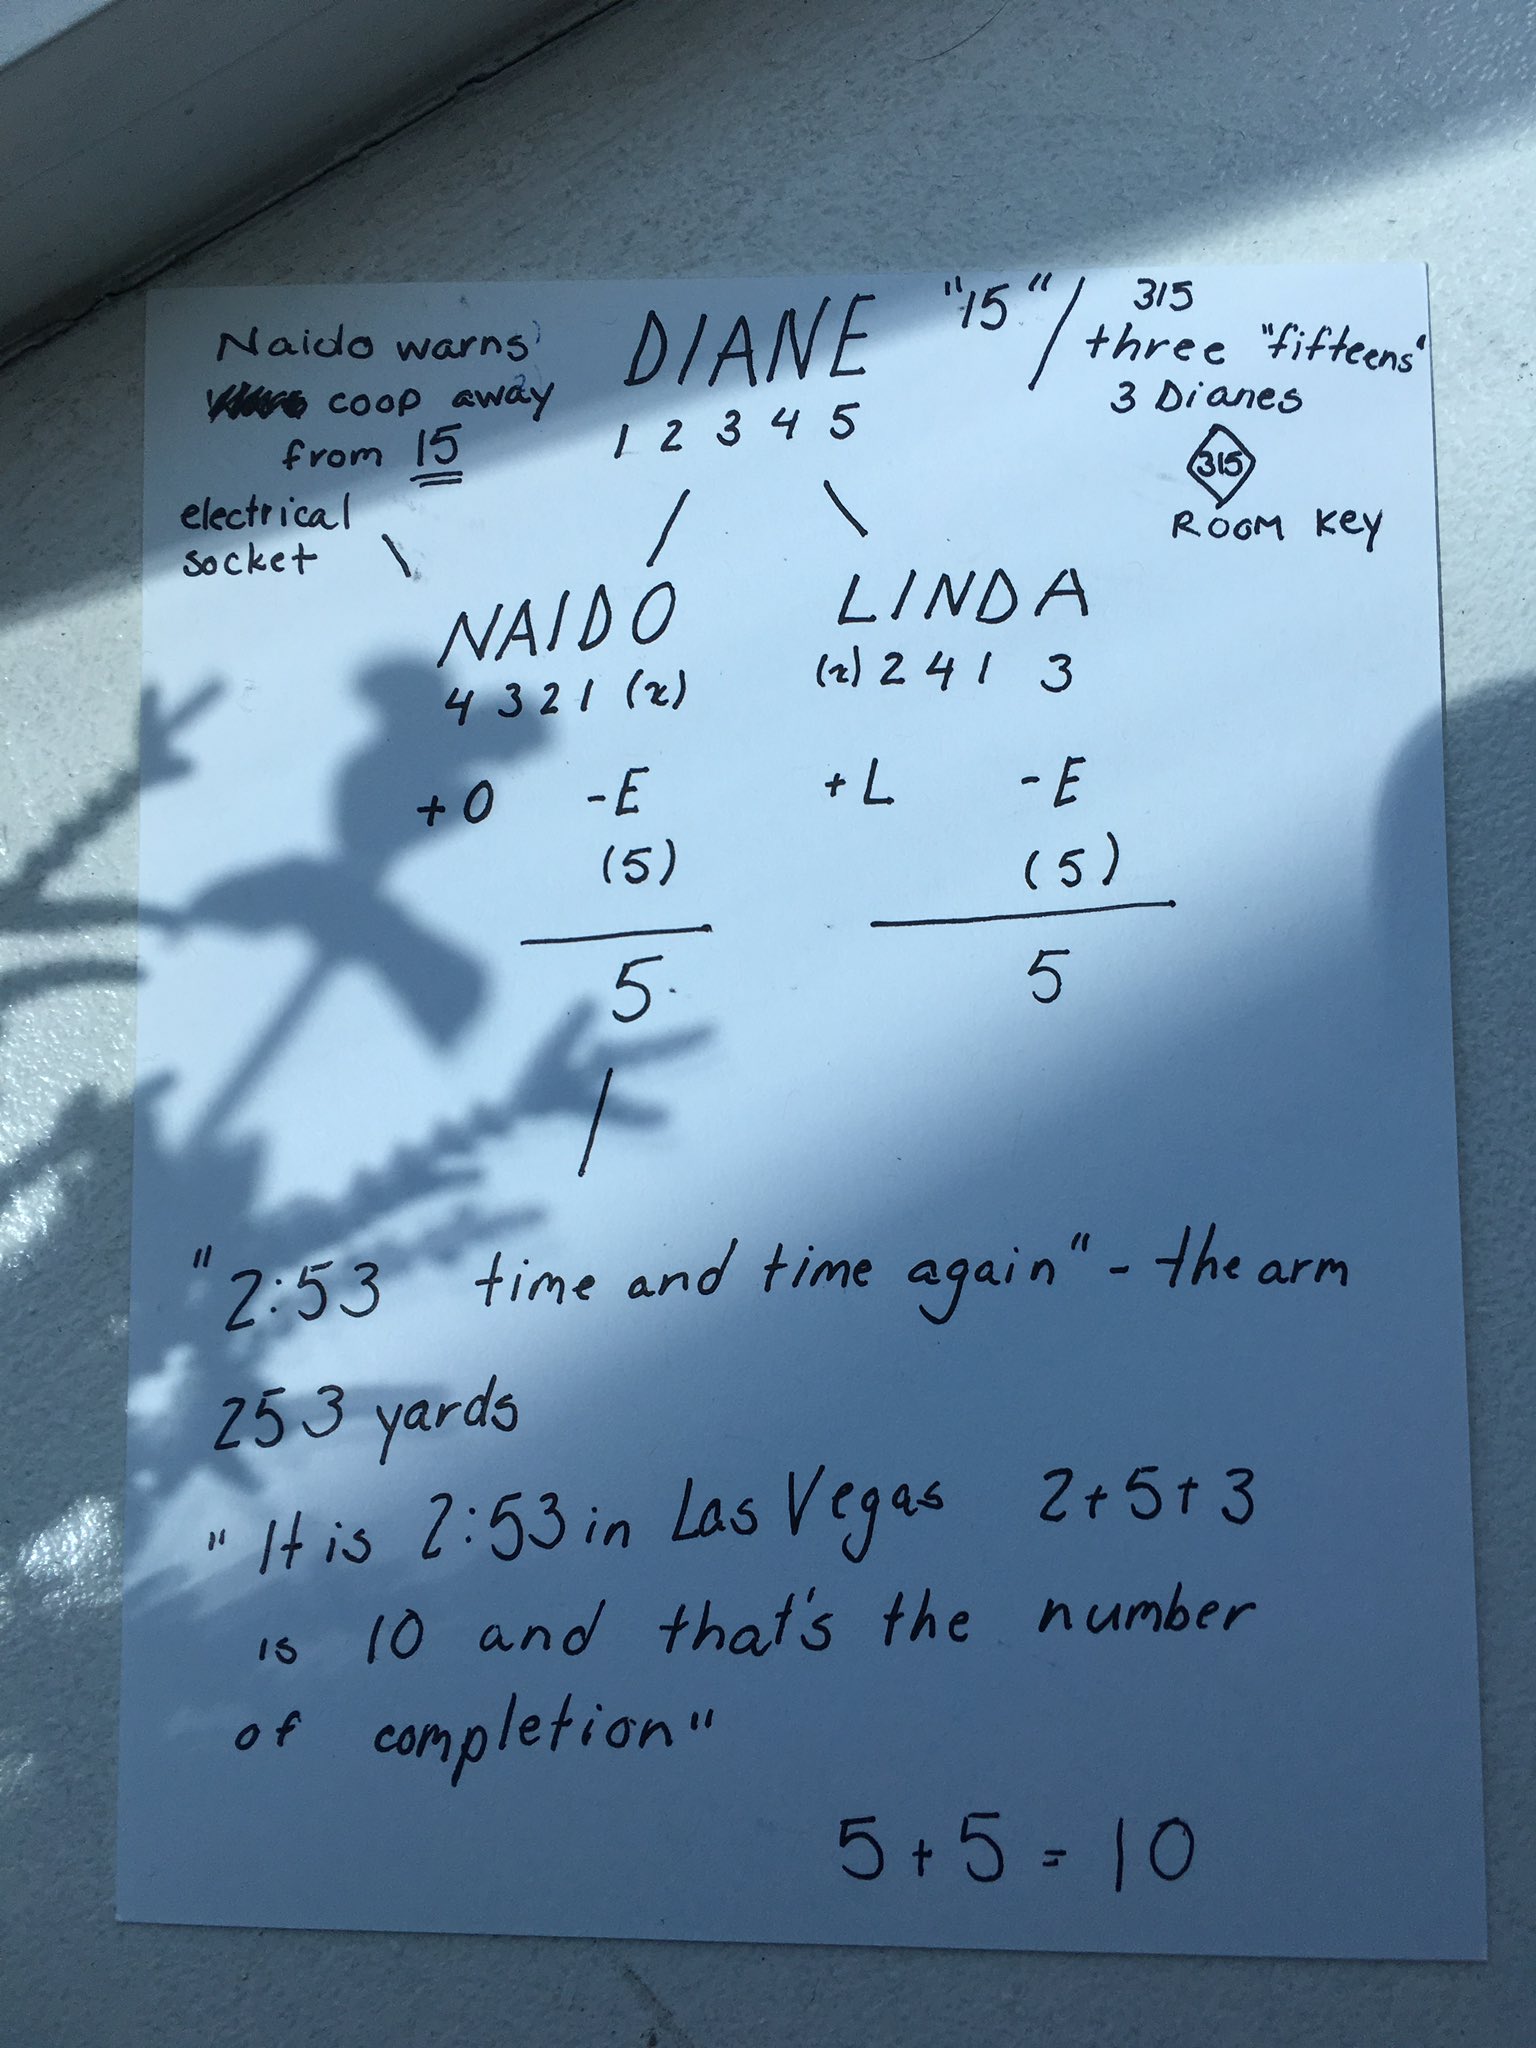 Naido warns
coop away
from 15
electrical
socket
DIANE
1 2 3 4 5
"15" /
315
three "fifteens"
3 Dianes
315
ROOM Key
NAIDO
4 3 2 1 (x)
+O -E
(5)
5
LINDA
(x) 2 4 1 3
+L -E
(5)
5
"2:53 time and time again" - the arm
253 yards
"It is 2:53 in Las Vegas 2+5+3
is 10 and that's the number
of completion"
5+5=10